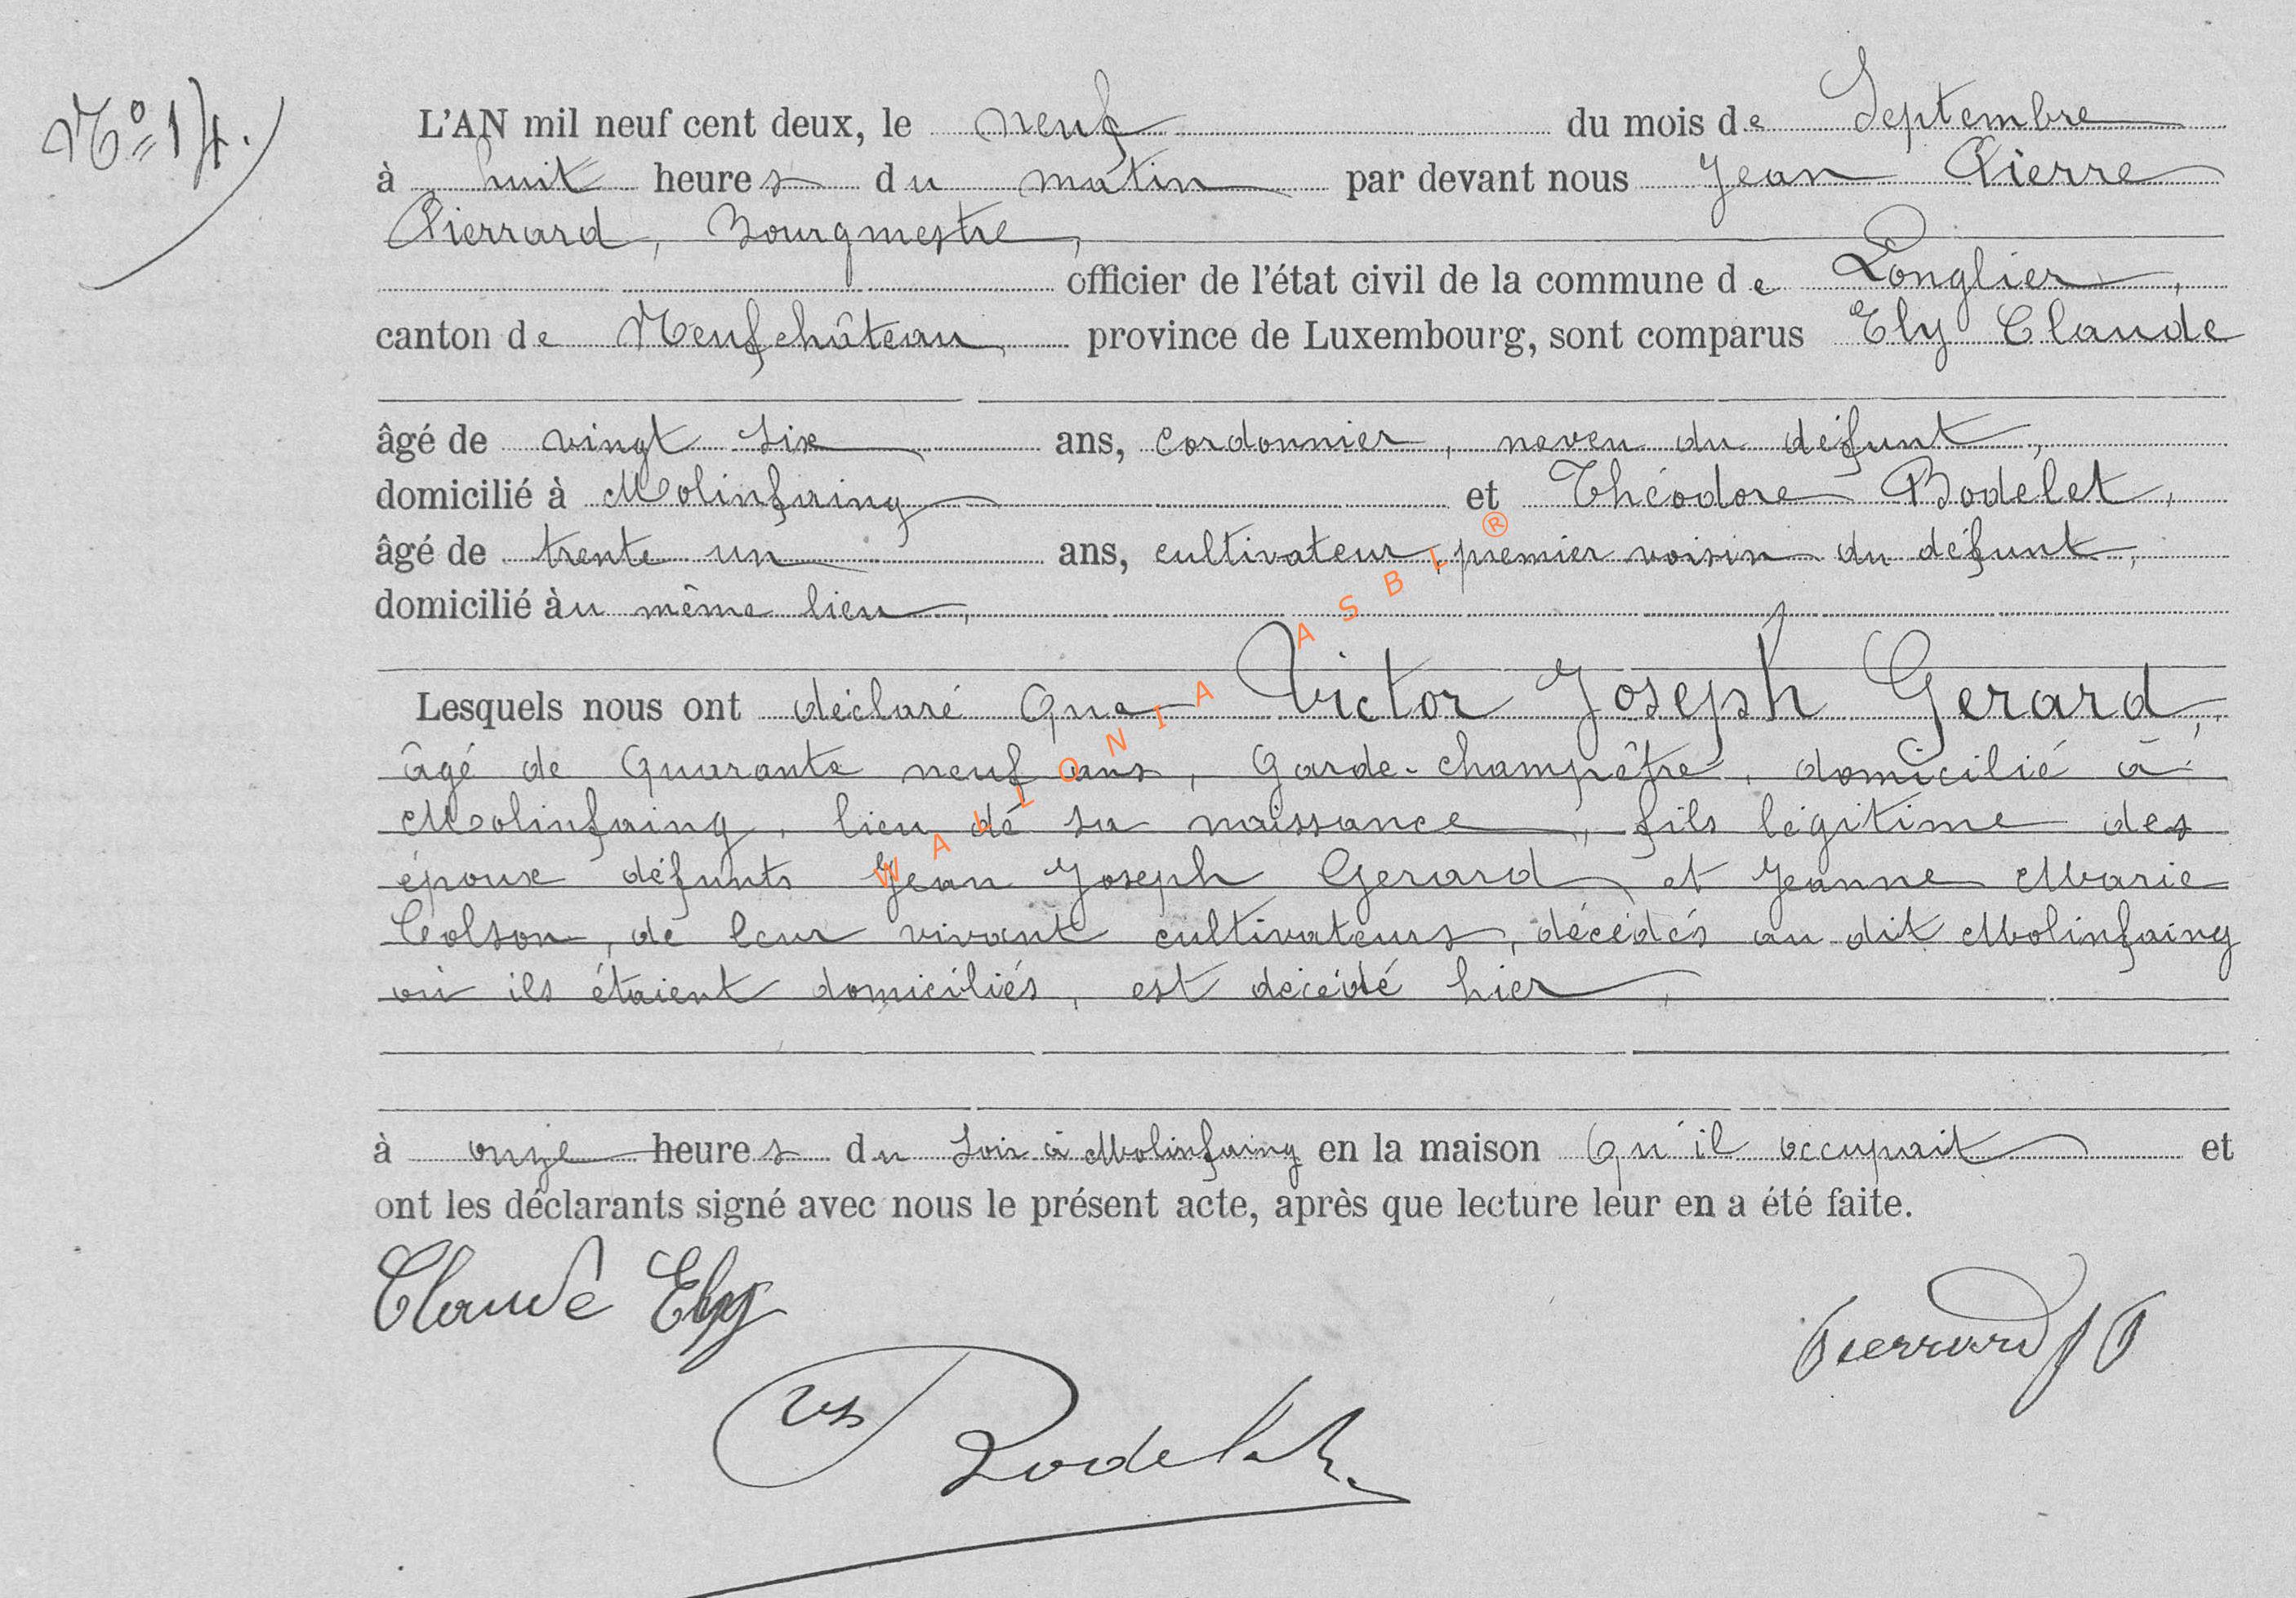 Nº 14.
L'AN mil neuf cent deux, le neuf du mois de Septembre
à huit heures du matin par devant nous Jean Pierre
Pierrard, Bourgmestre,
officier de l'état civil de la commune de Longlier,
canton de Neufchâteau province de Luxembourg, sont comparus Ely Claude
âgé de vingt six ans, cordonnier, neveu du défunt,
domicilié à Molinfaing et Théodore Bodelet,
âgé de trente un ans, cultivateur, premier voisin du défunt,
domicilié àu même lieu,
Lesquels nous ont déclaré Que Victor Joseph Gerard,
âgé de Quarante neuf ans, Garde-champêtre, domicilié à
Molinfaing, lieu de sa naissance, fils légitime des
époux défunts Jean Joseph Gerard et Jeanne Marie
Colson, de leur vivant cultivateurs, décédés au dit Molinfaing
où ils étaient domiciliés, est décédé hier,
à onze heures du soir à Molinfaing en la maison Qu'il occupait et
ont les déclarants signé avec nous le présent acte, après que lecture leur en a été faite.
Claude Ely
Pierrard JP
Bodelet
WALLONIA ASBL ®